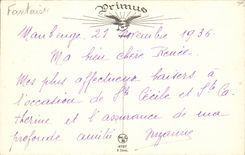 Fantaisie
Primus
Maubeuge, 21 Novembre 1936.
Ma bien chère Renée
Mes plus affectueux baisers à
l'occasion de Ste Cécile et Ste Ca
therine et l'assurance de ma
profonde amitié Suzanne